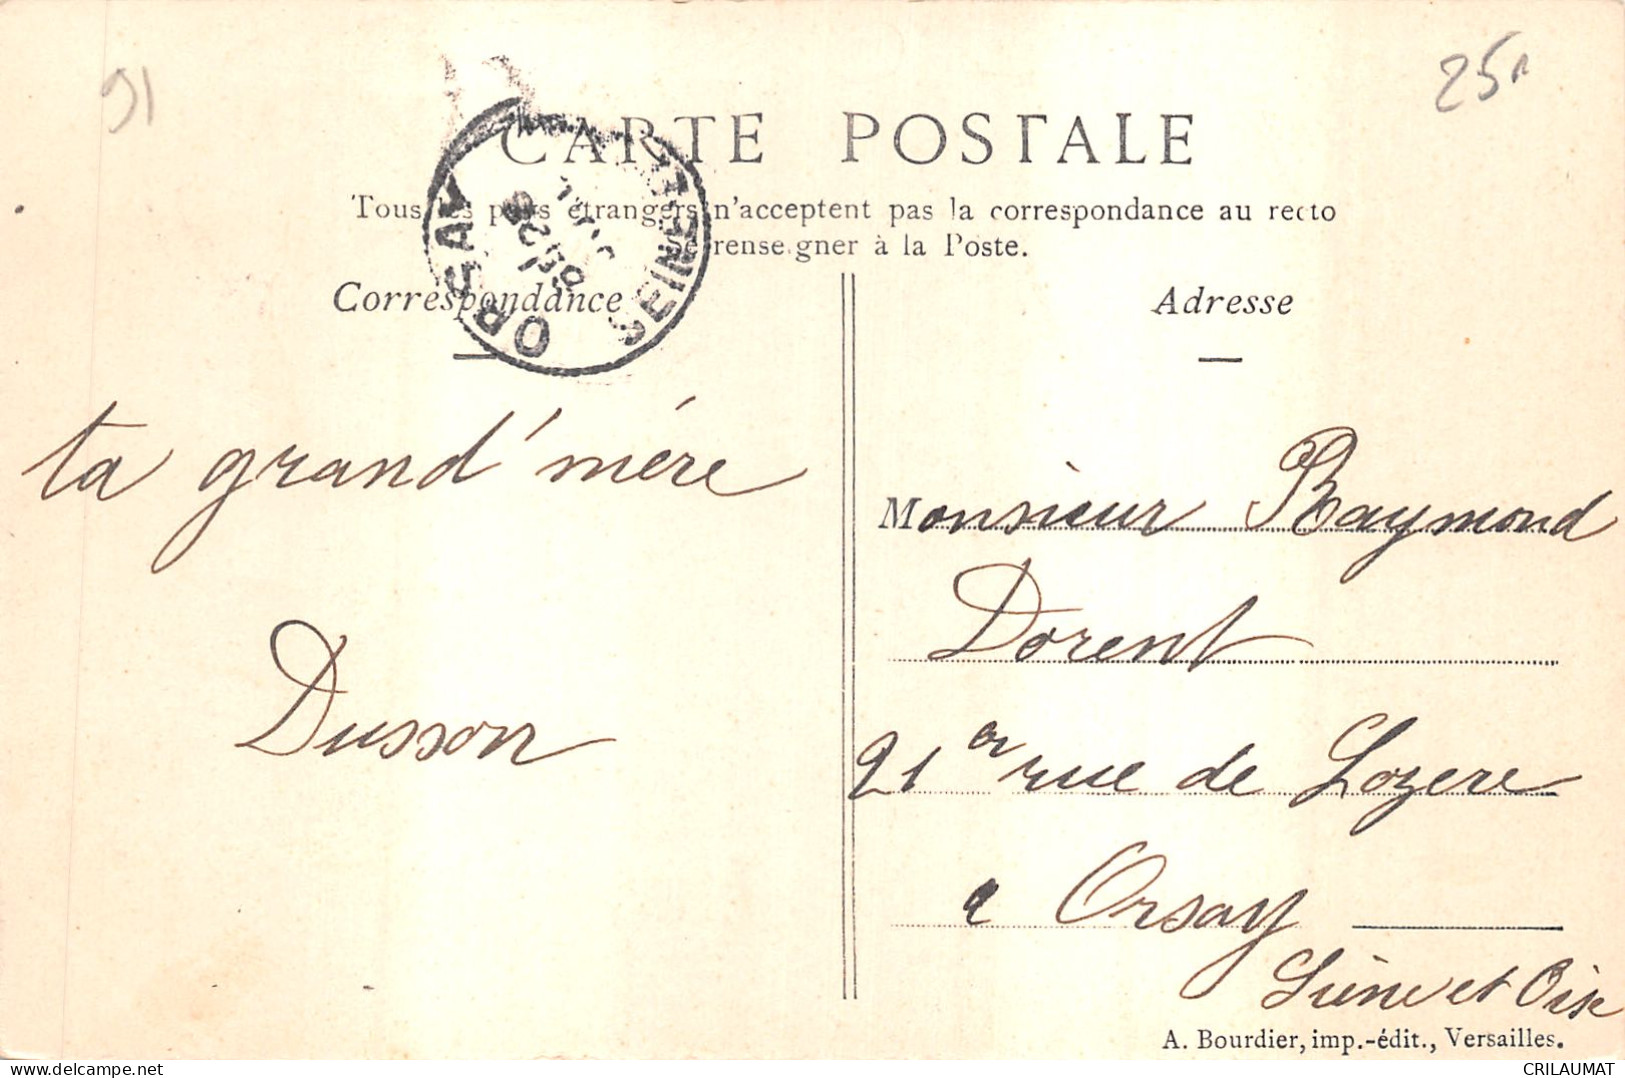 91
25
CARTE POSTALE
Tous les pays étrangers n'acceptent pas la correspondance au recto
Se renseigner à la Poste.
ORSAY
SEINE-ET-
Correspondance
Adresse
ta grand'mére
Dusson
Monsieur Raymond
Dorent
21 rue de Lozere
a Orsay
Siene et Oise
A. Bourdier, imp.-édit., Versailles.
CRILAUMAT